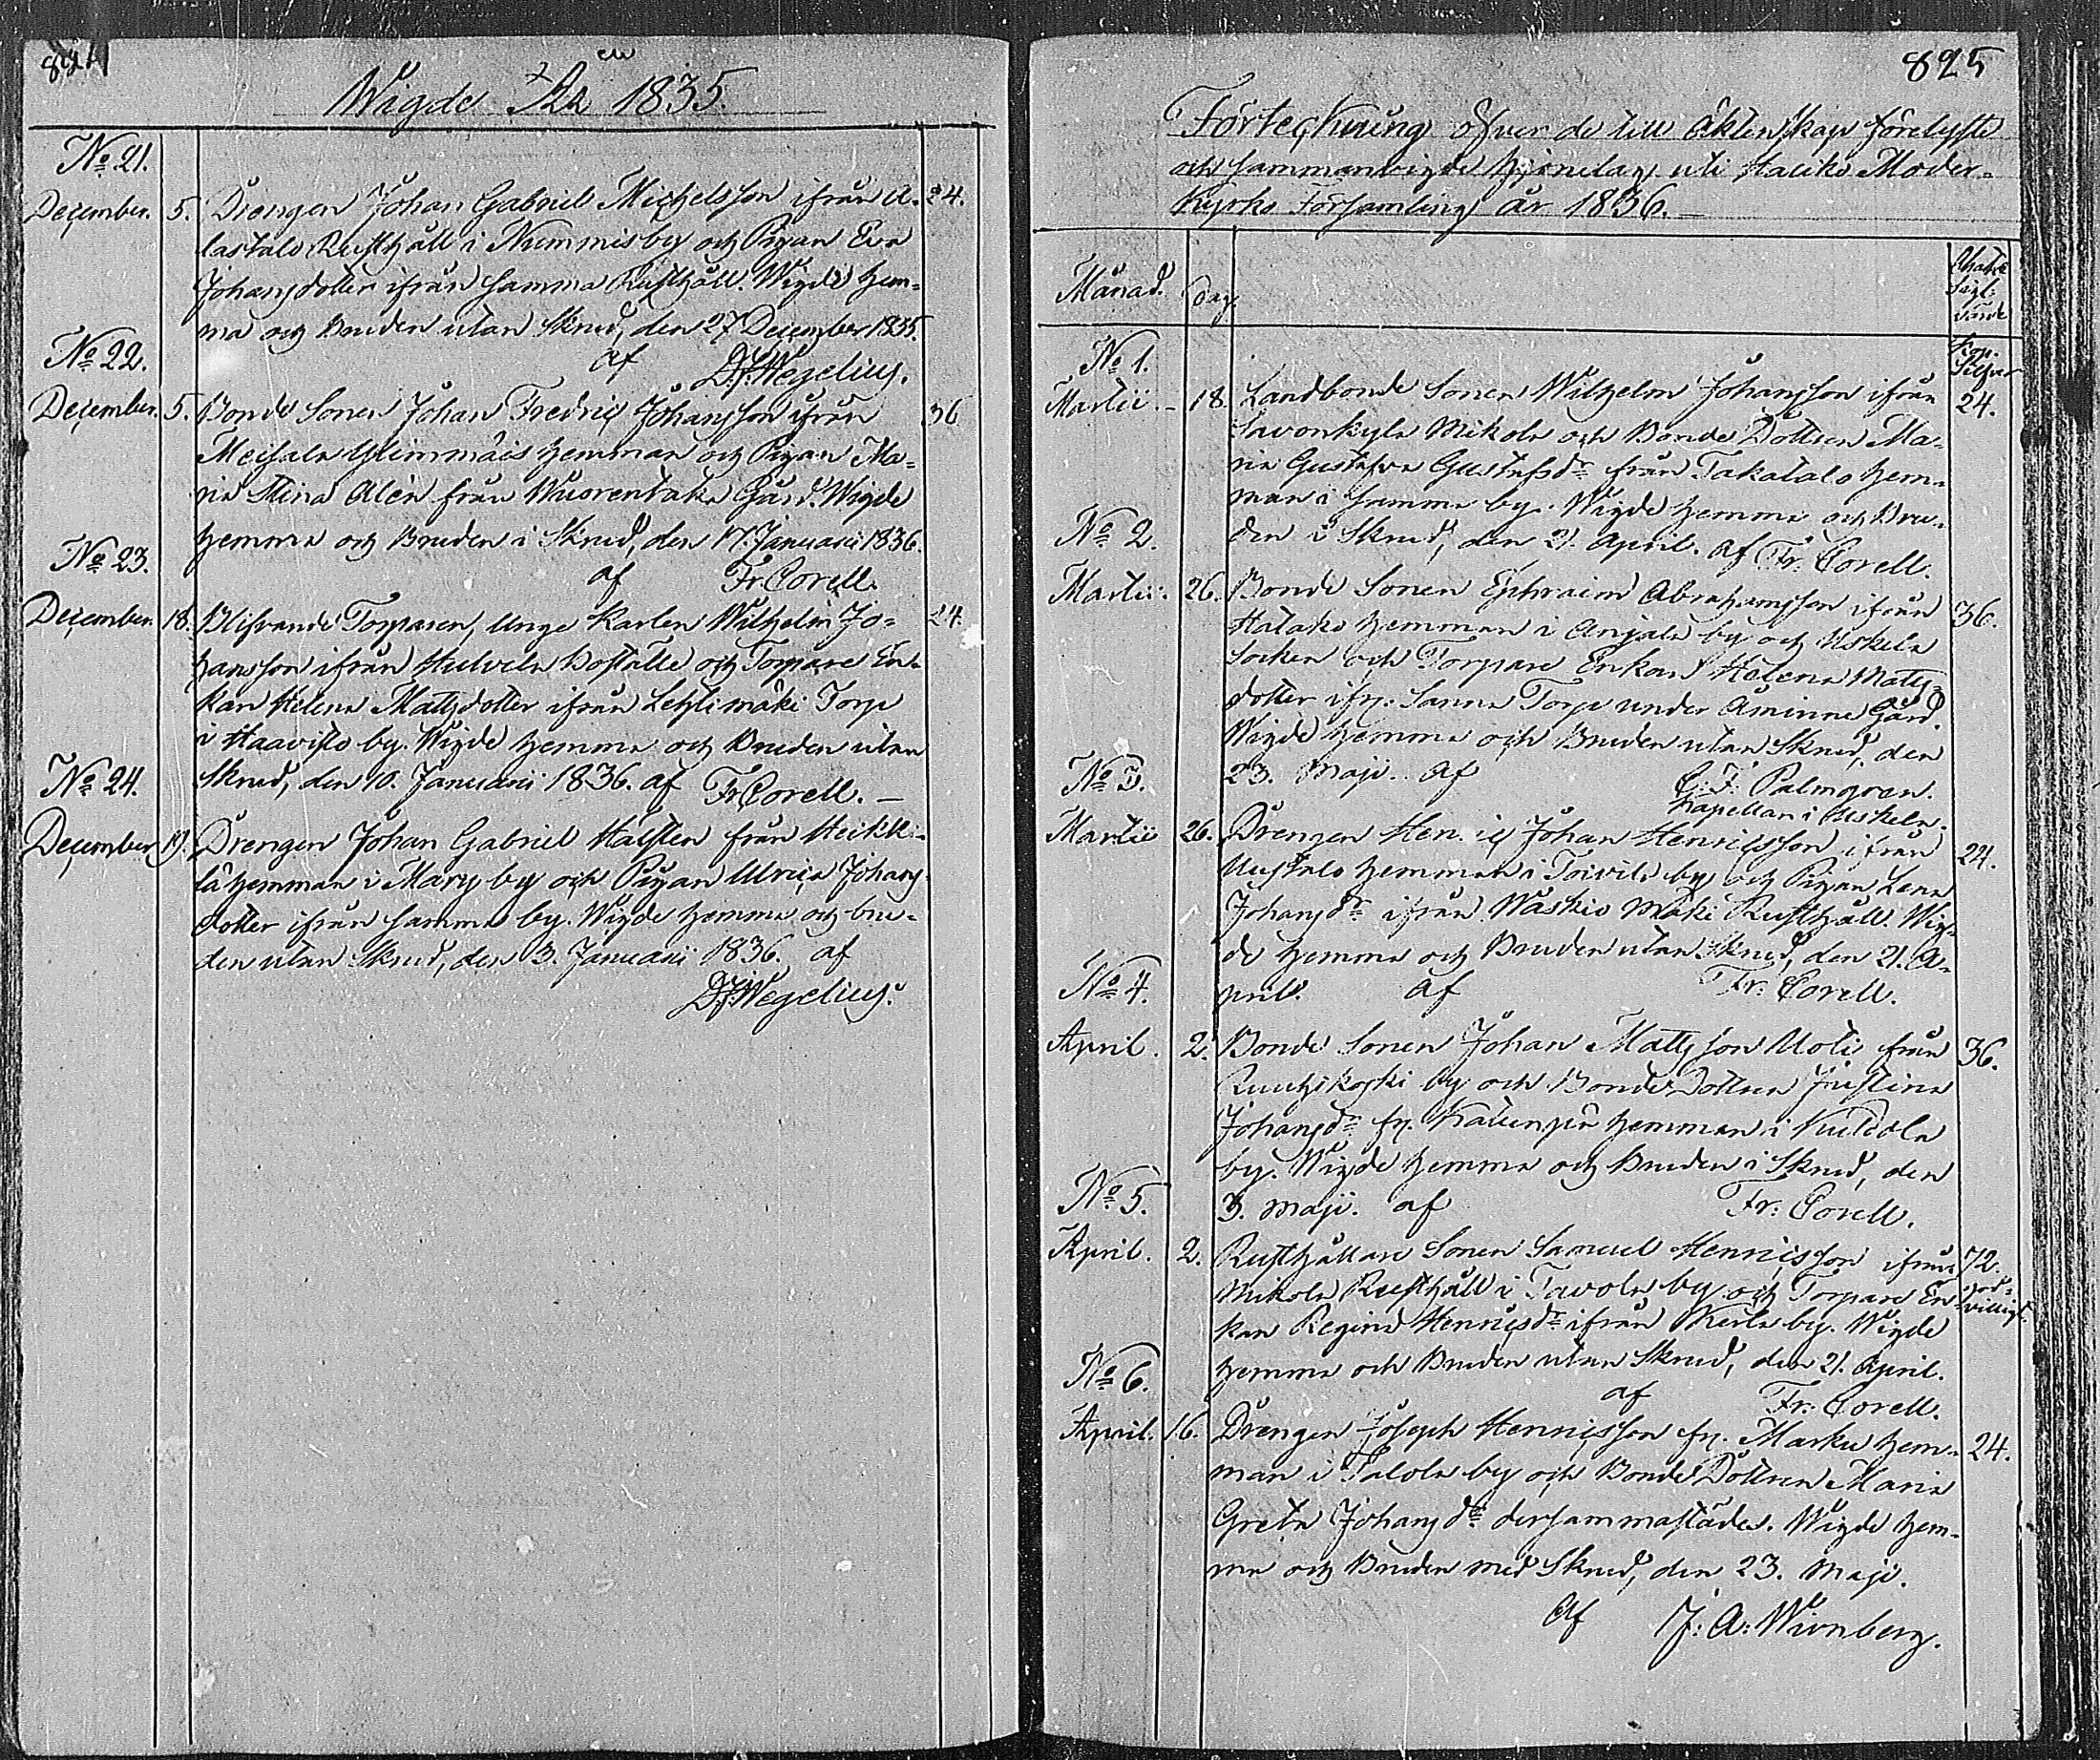 824
Wigde År 1835.
No 21.
December. 5. Drengen Johan Gabriel Michelsson ifrån A- 24.
lastalo Rusthåll i Nummis by och Pigan Eva
Johansdotter ifrån samma Rusthåll. Wigde hem-
ma och Bruden utan Skrud, den 27 December 1835.
af D. J. Wegelius.
No 22.
December. 5. Bonde Sonen Johan Fredric Johansson ifrån 36
Meisala hemman och Pigan Ma-
ria Stina Alén från Wuorentaka Gård. Wigde
hemma och Bruden i Skrud, den 17. Januarii 1836.
af Fr. Corell.
No 23.
December. 18. Blifvande Torparen, Unge Karlen Wilhelm Jo- 24.
hansson ifrån Hulvela Boställe och Torpare En-
kan Helena Mattsdotter ifrån Lehtimäki Torp
i Haavisto by. Wigde hemma och Bruden utan
Skrud, den 10. Januarii 1836. af Fr. Corell. —
No 24.
December 19. Drengen Johan Gabriel Halsten från Heikki-
lä hemman i Mary by och Pigan Ulrica Johans-
dotter ifrån samma by. Wigde hemma och bru-
den utan Skrud, den 3. Januarii 1836. af
D. J. Wegelius.
825
Förteckning öfver de till äktenskap förelyste
och sammanvigde hjonelag uti Haliko Moder-
Kyrko Församling år 1836. —
Månad. Dag.
Kop.
Silfver
No 1.
Martii. - 18. Landbonde Sonen Wilhelm Johansson ifrån 24.
Savonkylä Mikola och Bonde Dottren Ma-
ria Gustafva Gustafsdr från Takatalo hem-
man i samma by. Wigde hemma och Bru-
den i Skrud, den 21. April. af Fr: Corell.
No 2.
Martii. 26. Bonde Sonen Ephraim Abrahamsson ifrån 36.
Hatakо hemman i Anjala by och Uskela
Socken och Torpare Enkan Helena Matts-
dotter ifr. Sanna Torp under Åminne Gård.
Wigde hemma och Bruden utan Skrud, den
23. Maji. af C: F: Palmgren.
Kapellan i Uskela.
No 3.
Martii 26. Drengen Henric Johan Henricsson ifrån 24.
Uustalo hemman i Toivila by och Pigan Lena
Johansdr ifrån Waskio Mäki Rusthåll. Wig-
de hemma och Bruden utan Skrud, den 21. A-
pril. af Fr: Corell.
No 4.
April. 2. Bonde Sonen Johan Mattsson Uoti från 36.
Ruutsikoski by och Bonde Dottren Justina
Johansdr fr. hemman i Kuttola
by. Wigde hemma och Bruden i Skrud, den
3. Maji. af Fr: Corell.
No 5.
April. 2. Rusthållare Sonen Samuel Henricsson ifrån 72.
Mikola Rusthåll i Tavola by och Torpare En- god-
kan Regina Henricsdr ifrån Kerla by. Wigde villigt.
hemma och Bruden utan Skrud, den 21. April.
af Fr: Corell.
No 6.
April. 16. Drengen Joseph Henricsson fr. Marku hem- 24.
man i Talola by och Bonde Dottren Maria
Greta Johansdr dersammastädes. Wigde hem-
ma och Bruden med Skrud, den 23. Maji.
Af J: A: Wirnberg.